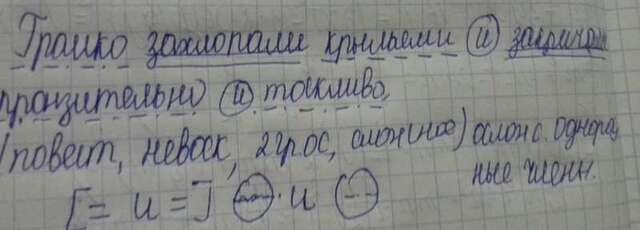 Громко захлопали крыльями и закрича
пронзительно и тоскливо.
(повест, невоск, 2 грос, ) ослож. однород
ные члены.
[= и =] и